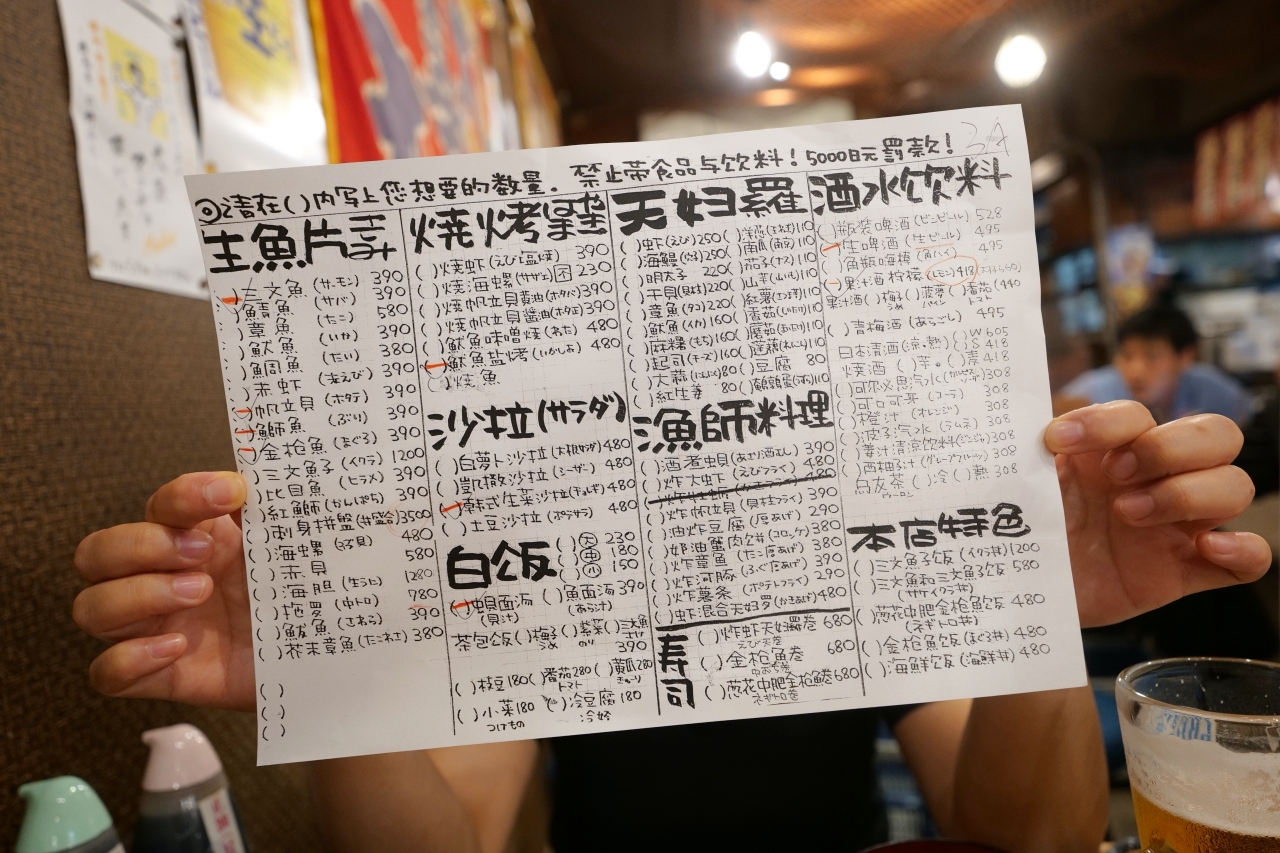 ◎请在( )内写上您想要的数量. 禁止带食品与饮料! 5000日元罰款!
生魚片
三文魚 (サーモン) 390
鯖魚 (サバ) 390
章魚 (たこ) 580
魷魚 (いか) 390
鯛魚 (たい) 380
赤虾 (赤えび) 390
帆立貝 (ホタテ) 390
鰤魚 (ぶり) 390
金枪魚 (まぐろ) 390
三文魚子 (イクラ) 1200
比目魚 (ヒラメ) 390
紅鰤 (かんぱち) 390
刺身拼盤 3500
( )海螺 480
( )赤貝 580
( )海胆 (生うに) 1280
(中トロ) 780
( )鮁魚 (さわら) 390
( )芥末章魚 (たこわさ) 380
( )
( )
( )
燒烤
( )燒虾 (えび塩焼) 390
( )燒海螺 (サザエ) 230
( )燒帆立貝黄油 (ホタバ) 390
( )燒帆立貝醬油 (ホタ正) 390
( )魷魚味噌燒 480
( )魷魚盐烤 (いかしお) 480
( )燒魚
沙拉(サラダ)
( )白萝卜沙拉 (大根サラダ) 480
( )凯撒沙拉 (シーザー) 480
( )韓式生菜沙拉 (チョレギ) 480
( )土豆沙拉 (ポテサラ) 480
白饭
( )大 230
( )中 180
( )小 150
( )蚬面汤 (貝汁) ( )魚面汤 390 (あら汁)
茶包饭( )梅子 うめ ( )紫菜 のり ( )三文魚
390
( )枝豆 180 ( )番茄 280 トマト ( )黄瓜 280 きゅうり
( )小菜 180 つけもの ( )冷豆腐 180 冷奴
天妇羅
( )虾 (えび) 250 ( )洋葱 (玉ねぎ) 110
( )海鰻 250 ( )南瓜 (南京) 110
( )明太子 220 ( )茄子 (ナス) 110
( )干貝 (貝柱) 220 ( )山芋 (山いも) 110
( )章魚 (タコ) 220 ( )紅薯 110
( )魷魚 (イカ) 160 ( )番茄 110
( )麻糬 (もち) 160 ( )蘑菇 110
( )起司 (チーズ) 160 ( )蓮藕 (れんこん) 110
( )大蒜 (にんにく) 80 ( )豆腐 80
( )紅生姜 80 ( )鵪鶉蛋 110
漁師料理
( )酒煮蚬 (あさり酒むし) 390
( )炸大虾 (えびフライ) 480
480
( )炸帆立貝 (貝柱フライ) 390
( )油炸豆腐 (厚あげ) 290
( )奶油蟹肉 (コロッケ) 380
( )炸章魚 (たこ唐あげ) 380
( )炸河豚 (ふぐ唐あげ) 390
( )炸薯条 (ポテトフライ) 290
( )虾混合天妇罗 (かきあげ) 480
寿司
( )炸虾天妇羅卷 680
えび天巻
( )金枪魚卷 680
( )葱花中肥金枪鱼卷 680
ネギトロ巻
酒水饮料
( )瓶装啤酒 (ビンビール) 528
( )生啤酒 (生ビール) 495
( )角瓶嗨棒 (角ハイ) 495
( )果汁酒 柠檬 (レモン) 418
果汁酒 ( )梅子 うめ ( )菠萝 パイン ( )番茄 トマト (440
( )青梅酒 (あらごし) 495
日本清酒 (涼・熱) ( )W 605
( )S 418
燒酒 ( )芋。( )麦 418
( )可尔必思汽水 308
( )可口可樂 (コーラ) 308
( )橙汁 (オレンジ) 308
( )波子汽水 (ラムネ) 308
( )姜汁清涼饮料 (ジンジャ) 308
( )西柚汁 (グレープフルーツ) 308
( )烏友茶 ( )冷 ( )熱 308
ウーロン
本店特色
( )三文魚子饭 (イクラ丼) 1200
( )三文魚和三文魚子饭 580
(サケイクラ丼)
( )葱花中肥金枪魚饭 480
(ネギトロ丼)
( )金枪魚饭 (まぐろ丼) 480
( )海鮮饭 (海鮮丼) 480